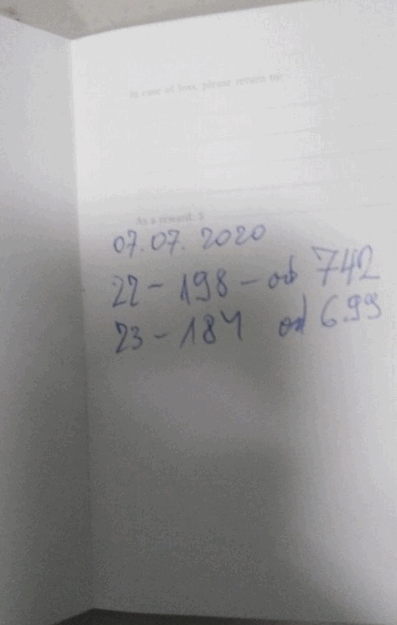 In case of loss, please return to:
As a reward: $
07.07.2020
22 - 198 - od 742
23 - 184 od 699